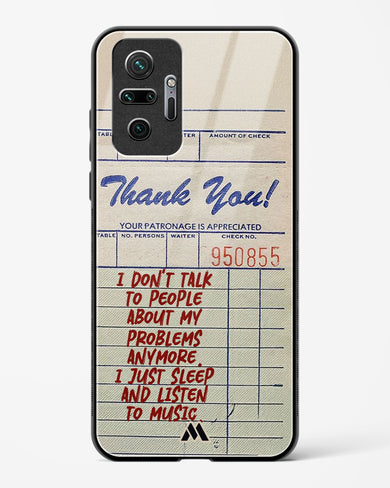 TABL TER AMOUNT OF CHECK
Thank You!
YOUR PATRONAGE IS APPRECIATED
TABLE NO. PERSONS WAITER CHECK NO.
950855
I DON'T TALK
TO PEOPLE
ABOUT MY
PROBLEMS
ANYMORE.
I JUST SLEEP
AND LISTEN
TO MUSIC